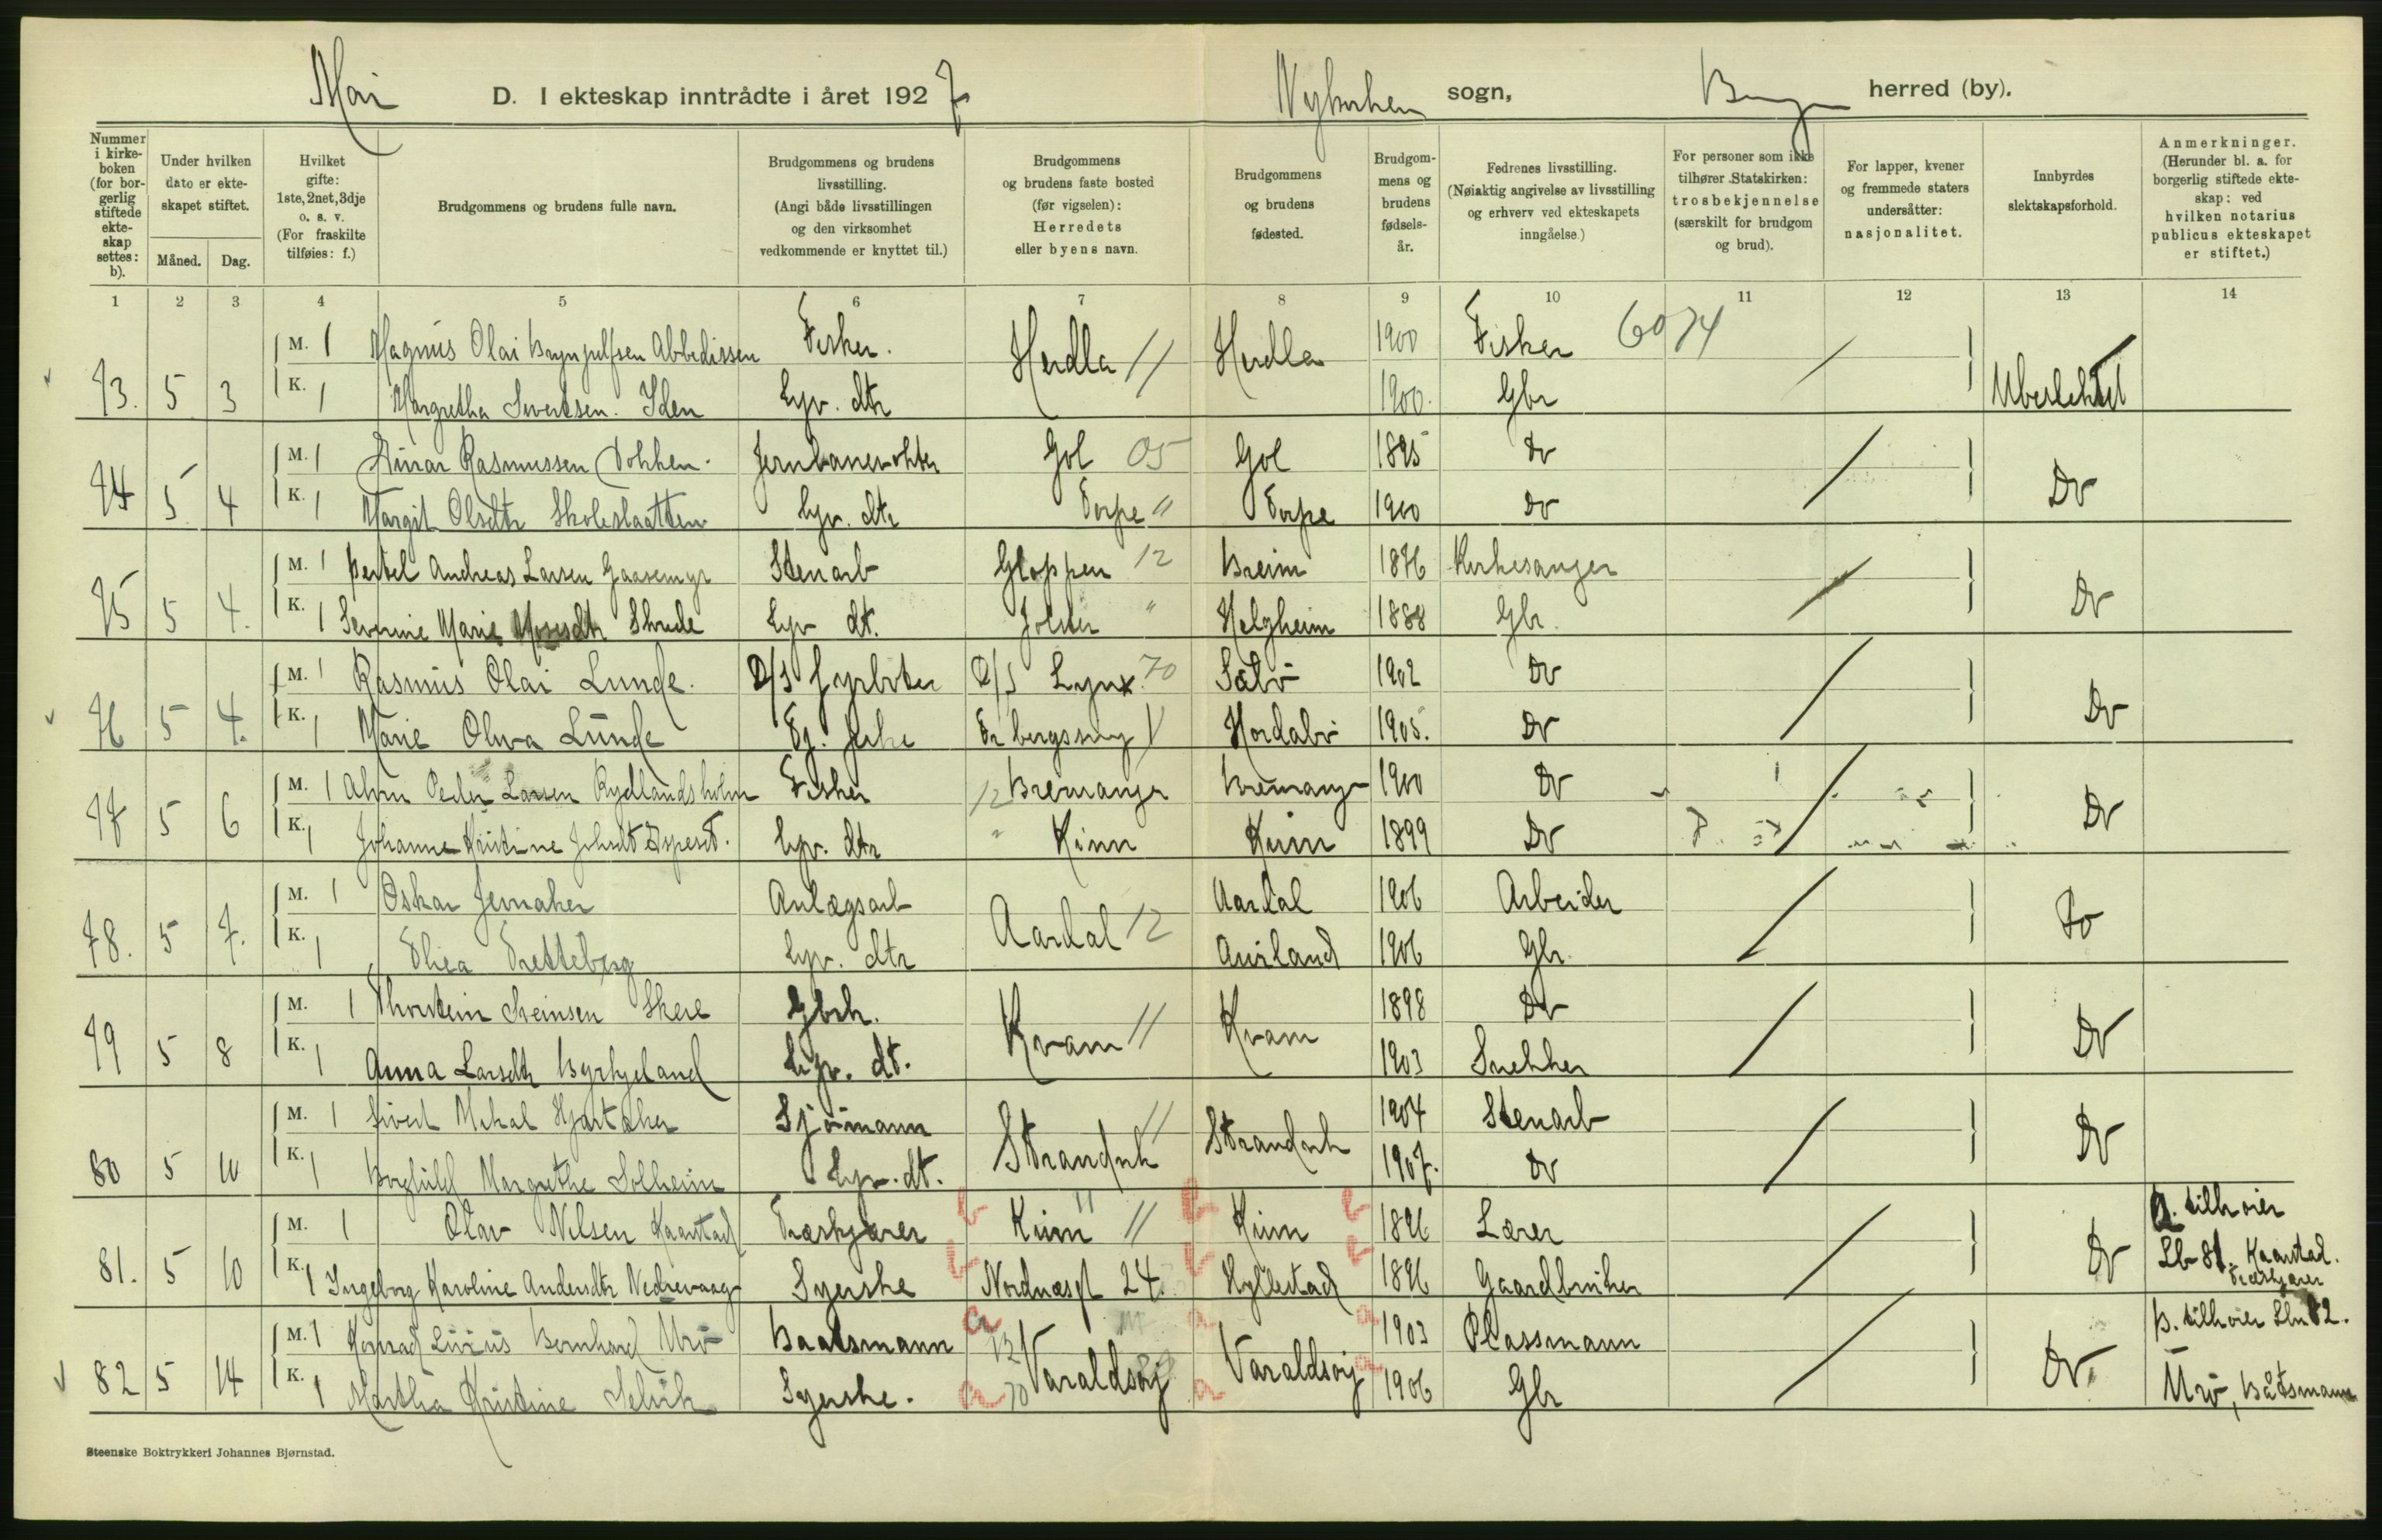 Mai D. I ekteskap inntrådte i året 1927 Nykirken sogn, Bergen herred (by).
Nummer i kirkeboken (for borgerlig stiftede ekteskap settes: b).
Under hvilken dato er ekteskapet stiftet.
Måned. Dag.
Hvilket gifte: 1ste, 2net, 3dje o. s. v. (For fraskilte tilføies: f.)
Brudgommens og brudens fulle navn.
Brudgommens og brudens livsstilling. (Angi både livsstillingen og den virksomhet vedkommende er knyttet til.)
Brudgommens og brudens faste bosted (før vigselen): Herredets eller byens navn.
Brudgommens og brudens fødested.
Brudgommens og brudens fødselsår.
Fedrenes livsstilling. (Nøiaktig angivelse av livsstilling og erhverv ved ekteskapets inngåelse.)
For personer som ikke tilhører Statskirken: trosbekjennelse (særskilt for brudgom og brud).
For lapper, kvener og fremmede staters undersåtter: nasjonalitet.
Innbyrdes slektskapsforhold.
Anmerkninger. (Herunder bl. a. for borgerlig stiftede ekteskap: ved hvilken notarius publicus ekteskapet er stiftet.)
1 2 3 4 5 6 7 8 9 10 11 12 13 14
M. 1 Magnus Olai Brynjulfsen Abbedissen Fisker. Herdla 11 Herdla 1900 Fisker 6074
73. 5 3 K. 1 Margretha Sivertsen. Iden Hv. dtr 1900. Gbr Ubeslektet
M. 1 Einar Rasmussen Dokken. Jernbanevokter Gol 05 Gol 1895 Do
74 5 4 K. 1 Margit Olsdtr Skoleslaatten Hv. dtr Torpe " Torpe 1900 Do Do
M. 1 Bertel Andreas Larsen Gaasemyr Stenarb Gloppen 12 Breim 1876 Kirkesanger
75 5 4. K. 1 Severine Marie Mosesdtr Skrede Hv dt. Jolster " Helgheim 1888 Gbr. Do
M. 1 Rasmus Olai Lunde. D/S fyrbøter D/S Lynx. 70 Sælø 1902 Do
76 5 4. K. 1 Marie Oliva Lunde Hordabø 1905. Do Do
M. 1 Peder Larsen Rydlandsholm Fisker 12 Bremanger Bremanger 1900 Do
77 5 6 K. 1 Johanne Kristine Johsdt Hv. dtr " Kinn Kinn 1899 Do Do
M. 1 Oskar Jernaker Anlægsarb Aardal 12 Aardal 1906 Arbeider
78. 5 7. K. 1 Thea Tretteberg Hv. dtr Aurland 1906 Gbr. Do
M. 1 Thorstein Steinsen Skeie Gbrk. Kvam 11 Kvam 1898 Do
79 5 8 K. 1 Anna Larsdtr Byrkjeland Hv. dt. 1903 Snekker Do
M. 1 Sivert Mikal Hjartaker Sjømann Strandvik 11 Strandvik 1904 Stenarb
80 5 10 K. 1 Borghild Margrethe Solheim Hv. dt. 1907. Do Do
M. 1 Olav Nilsen Kaarstad Træskjærer Kinn 11 Kinn 1896 Lærer
81. 5 10 K. 1 Ingeborg Karoline Andersdtr Nedrevaag Syerske Nordnæsgt 24. Hyllestad 1896 Gaardbruker Do
A. tilhører
Lb 81. Kaarstad.
Træskjærer
M. 1 Konrad Bernhard Urø Baatsmann 12 Varaldsøy Varaldsøy 1903 Plassmann
82 5 14 K. 1 Martha Kristine Selvik Syerske. 70 1906 Gbr Do.
B. tilhører Lb 82.
Urø, Båtsmann
Steenske Boktrykkeri Johannes Bjørnstad.